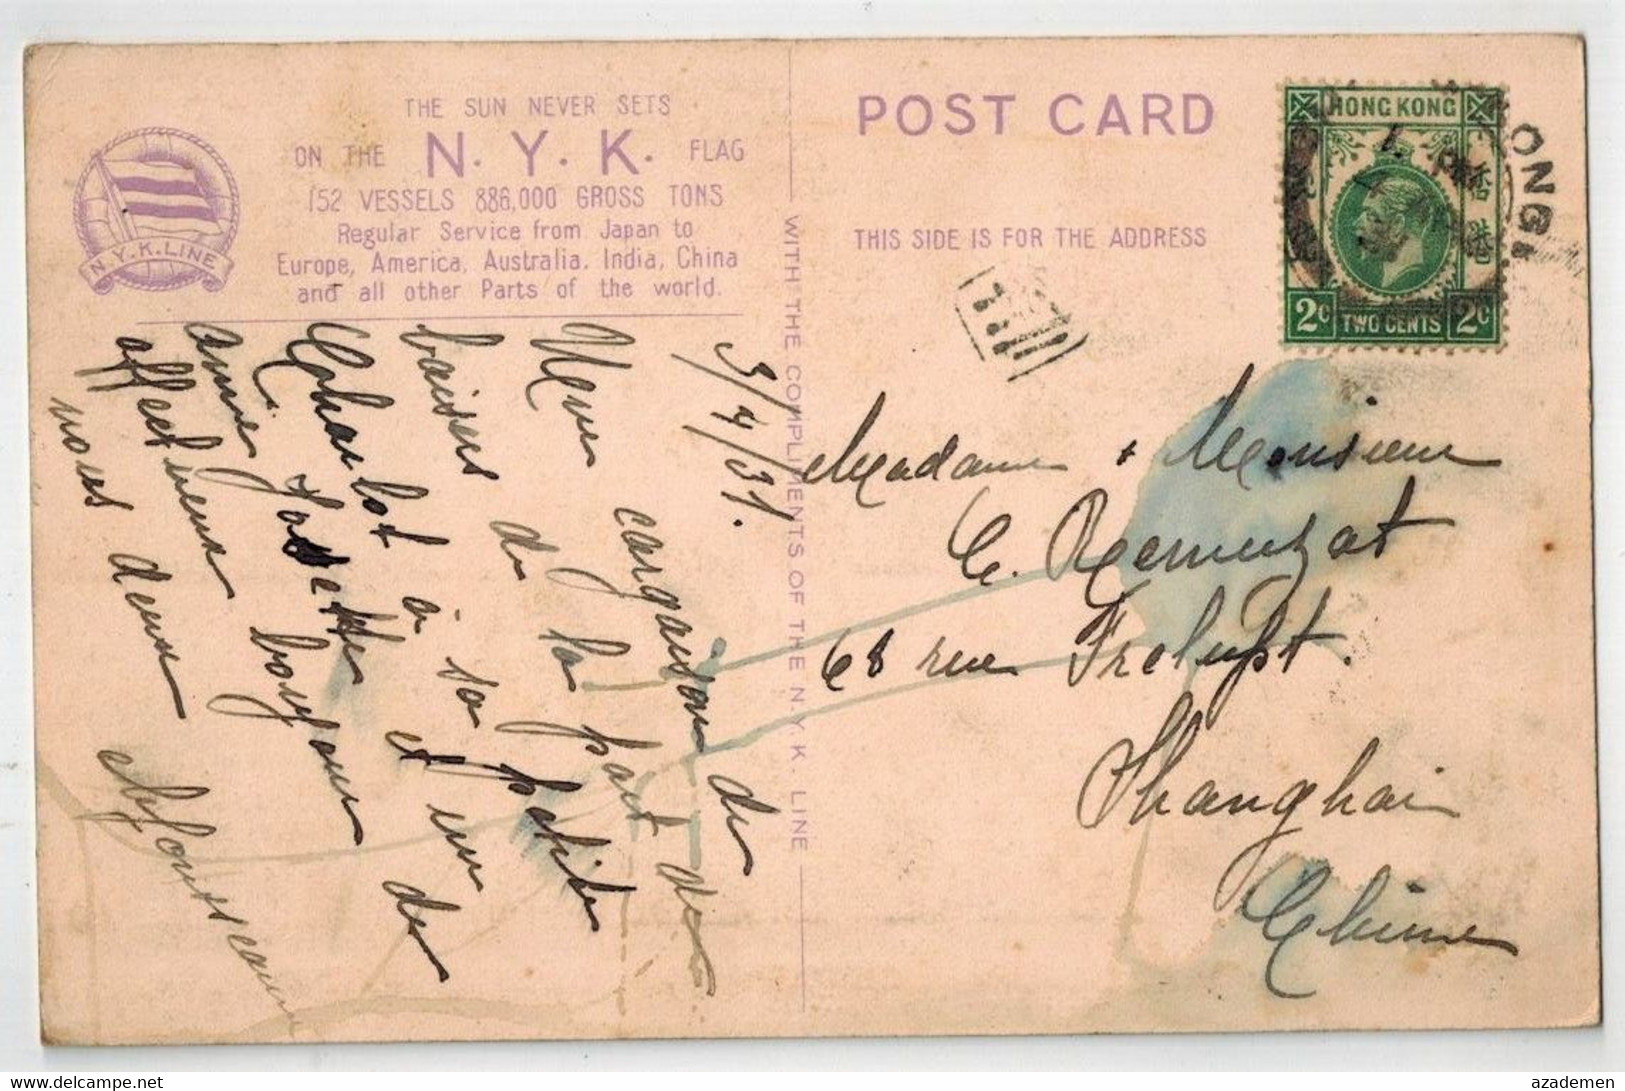 THE SUN NEVER SETS
ON THE N.Y.K. FLAG
152 VESSELS 886,000 GROSS TONS
Regular Service from Japan to
Europe, America, Australia, India, China
and all other Parts of the world.
N.Y.K.LINE
POST CARD
THIS SIDE IS FOR THE ADDRESS
WITH THE COMPLIMENTS OF THE N.Y.K. LINE
HONG KONG
香港
2C TWO CENTS 2C
ONG
PM
3/4/31.
Une cargaison de
baisers de la part de
Charlot à sa petite
amie Josette et un de
affectueux bonjour
nous deux
Madame & Monsieur
C. Remuzat
68 rue
Shanghai
Chine
azademen